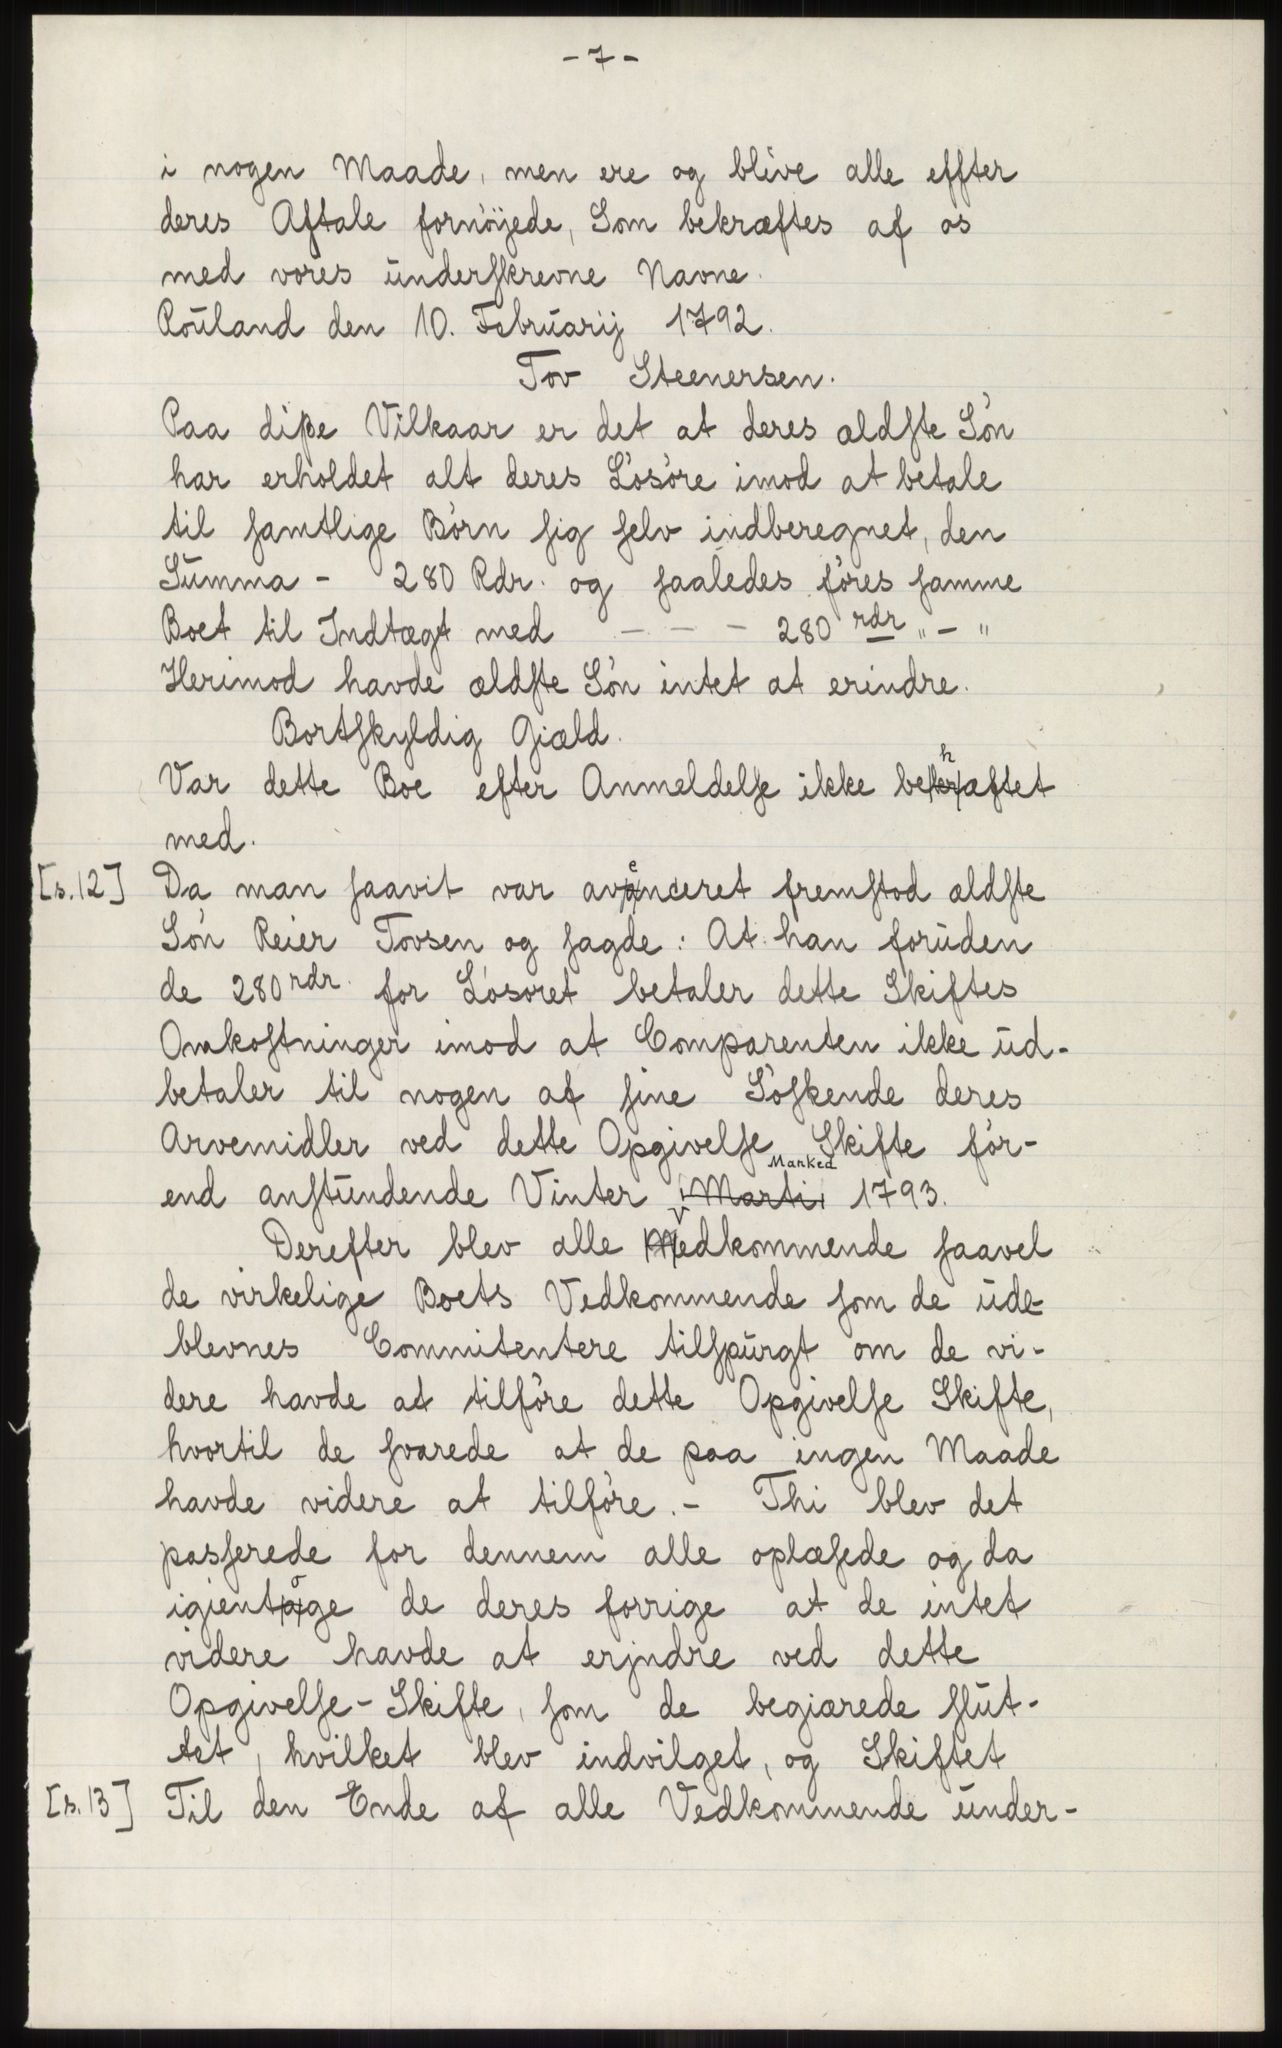 - 7 -
i nogen Maade, men ere og blive alle effter
deres Aftale fornöyede, Som bekræftes af os
med vores underskrevne Navne.
Rouland den 10. Februarij 1792.
Tov Steenersen.
Paa diße Vilkaar er det at deres ældste Sön
har erholdet alt deres Lösöre imod at betale
til samtlige Börn sig selv indberegnet, den
Summa - 280 Rdr. og saaledes föres samme
Boet til Indtægt med - - - 280 rdr " - "
Herimod havde ældste Sön intet at erindre.
Bortskyldig Giæld.
h
Var dette Boe efter Anmeldelse ikke bekræftet
med.
e
[s.12] Da man saavit var avanceret fremstod ældste
Sön Reier Tovsen og sagde: At han foruden
de 280 rdr. for Lösoret betaler dette Skiftes
Omkostninger imod at Comparenten ikke ud-
betaler til nogen af sine Söskende deres
Arvemidler ved dette Opgivelse Skifte för-
Marked
end anstundende Vinter Marti 1793.
v
Derefter blev alle Medkommende saavel
de virkelige Boets Vedkommende som de ude-
blevnes Commitentere tilspurgt om de vi-
dere havde at tilföre dette Opgivelse Skifte,
hvortil de svarede at de paa ingen Maade
havde videre at tilföre. - Thi blev det
passerede for dennem alle oplæsede og da
o
igientage de deres forrige at de intet
videre havde at erjndre ved dette
Opgivelse-Skifte, som de begiærede slut-
tet, hvilket blev indvilget, og Skiftet
[s.13] Til den Ende af alle Vedkommende under-